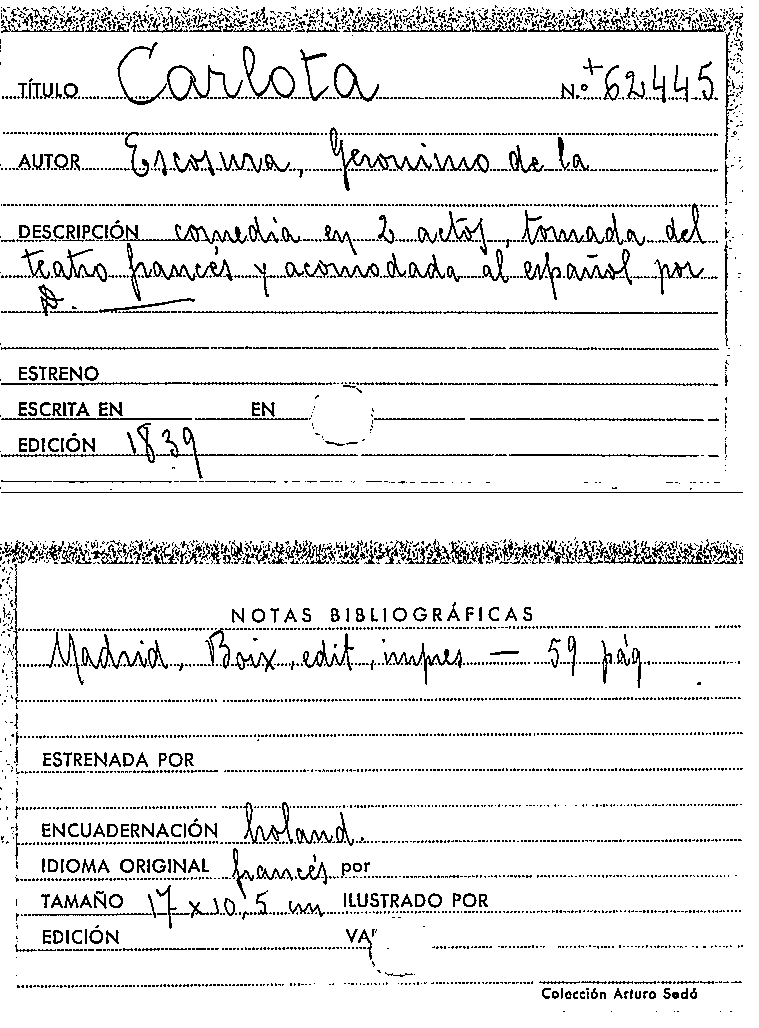 TÍTULO Carlota N.º +62445
AUTOR Escosura, Geronimo de la
DESCRIPCIÓN comedia en 2 actos, tomada del
teatro francés y acomodada al español por
D. ———
ESTRENO
ESCRITA EN EN
EDICIÓN 1839
NOTAS BIBLIOGRÁFICAS
Madrid, Boix, edit, impres — 59 pág.
ESTRENADA POR
ENCUADERNACIÓN holand.
IDIOMA ORIGINAL francés por
TAMAÑO 17 x 10,5 cm ILUSTRADO POR
EDICIÓN
Colección Arturo Sedó